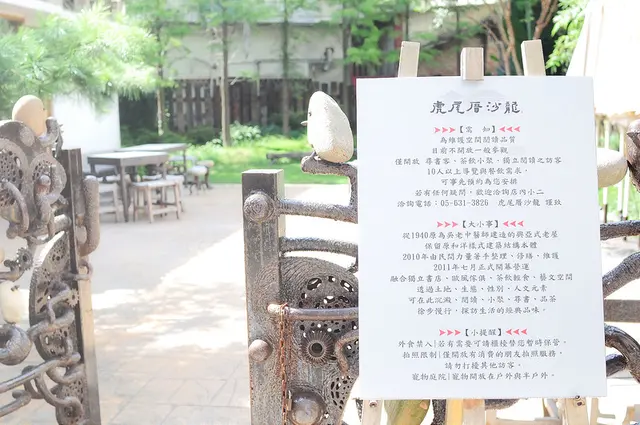 虎尾厝沙龍
【需 知】
為維護空間閱讀品質
目前不開放一般參觀
僅開放 尋書客、茶飲小聚、獨立閱讀之訪客
10人以上導覽與餐飲需求,
可事先預約為您安排
若有任何疑問,歡迎洽詢店內小二
洽詢電話:05-631-3826 虎尾厝沙龍 謹致
【大小事】
從1940原為吳老中醫師建造的興亞式老屋
保留原和洋樣式建築結構本體
2010年由民間力量著手整理、修繕、維護
2011年七月正式開幕營運
融合獨立書店、歐風傢俱、茶飲輕食、藝文空間
透過土地、生態、性別、人文元素
可在此沉澱、閱讀、小聚、尋書、品茶
徐步慢行,探訪生活的經典品味。
【小提醒】
外食禁入|若有需要可請櫃檯替您暫時保管。
拍照限制|僅開放有消費的朋友拍照服務,
請勿打擾其他訪客。
寵物庭院|寵物開放在戶外與半戶外。